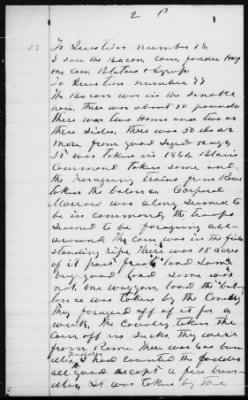 2 P
To Question Number 78
I saw the Bacon, Corn, fodder, Hay
one Corn Potatoes & Syrup.
To Question number 79
The Bacon was in the Smoke
house, there was about 50 pounds
there was two Hams and two or
three sides. There was 50 lbs or
more from good sized hogs.
It was taken in 1864.
Command took some and
the foraging trains from Rome
taken the balance Corporal
Morrow was along seemed to
be in command, the troops
seemed to be foraging all
around The Corn was in the field
standing ripe, There was 15 acres
of it first land some
very good load some was
not. one waggon load the bal
ance was taken by the Cavalry
They foraged off of it for a
week, the Cavalry taken the
corn off in sacks they were
from Rome. There was
I had counted the fodder
all good except a few bun
dles. It was taken by the